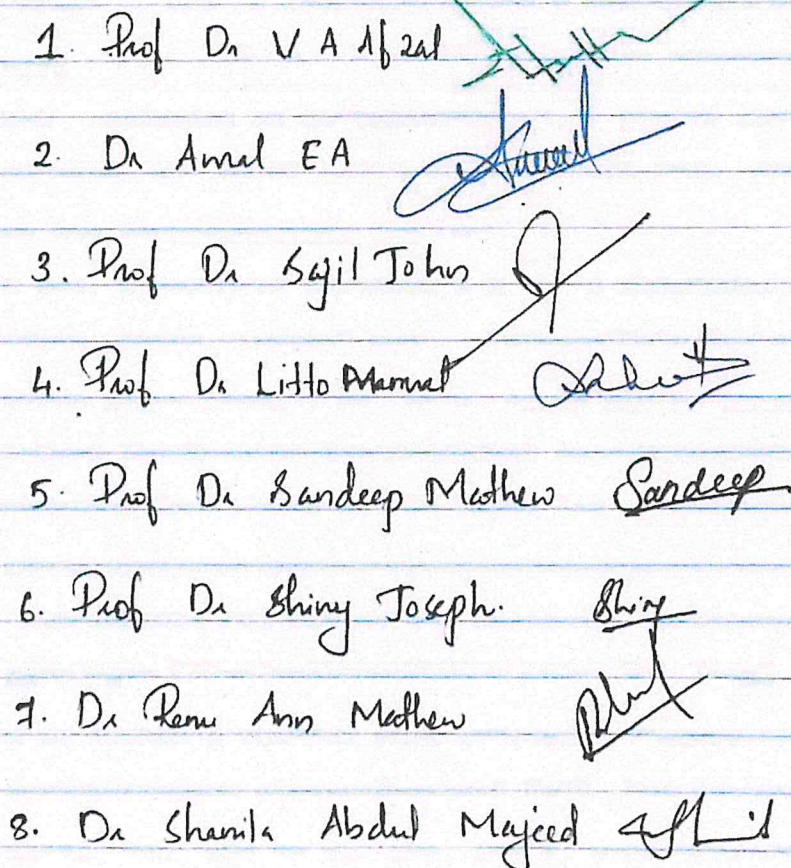 1. Prof Dr V A Afzal
2. Dr Amal E A
3. Prof Dr Sajil John
4. Prof Dr Litto Manuel
5. Prof Dr Sandeep Mathew Sandeep
6. Prof Dr Shiny Joseph. Shiny
7. Dr Renu Ann Mathew
8. Dr Shamila Abdul Majeed